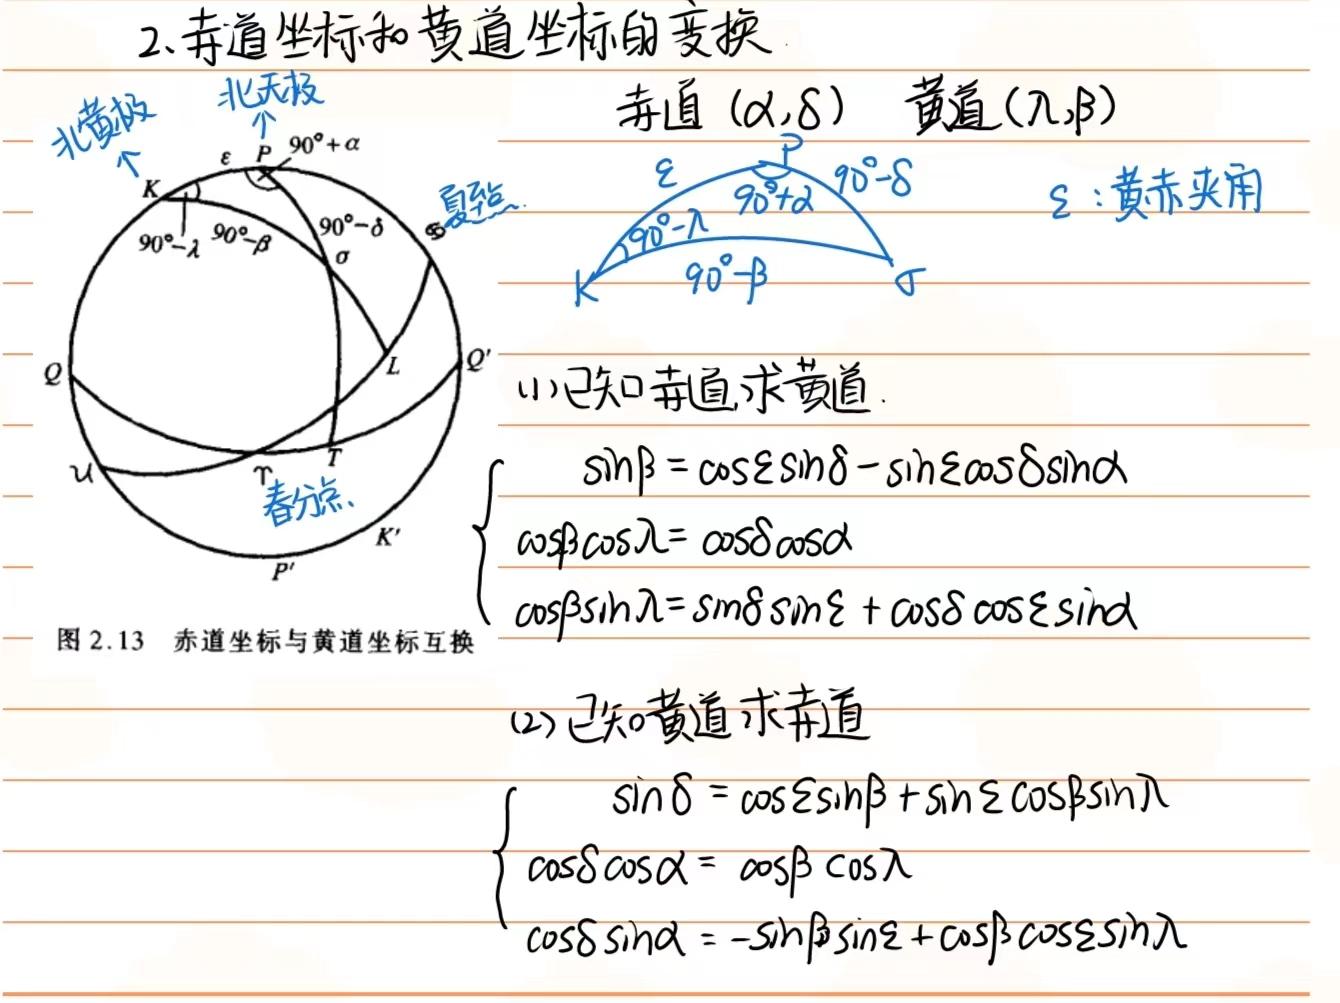 2、赤道坐标和黄道坐标的变换
赤道 (α,δ) 黄道(λ,β)
ε:黄赤夹角
北黄极
北天极
夏至点
春分点
K
ε
P
90°+α
90°-λ
90°-β
90°-δ
σ
♋
Q
Q'
L
T
♈
K'
P'
图 2.13 赤道坐标与黄道坐标互换
ε
P
90°+α
90°-δ
90°-λ
90°-β
K
σ
(1)已知赤道,求黄道.
sinβ = cosεsinδ - sinεcosδsinα
cosβcosλ = cosδcosα
cosβsinλ = sinδsinε + cosδcosεsinα
(2)已知黄道求赤道
sinδ = cosεsinβ + sinεcosβsinλ
cosδcosα = cosβcosλ
cosδsinα = -sinβsinε + cosβcosεsinλ